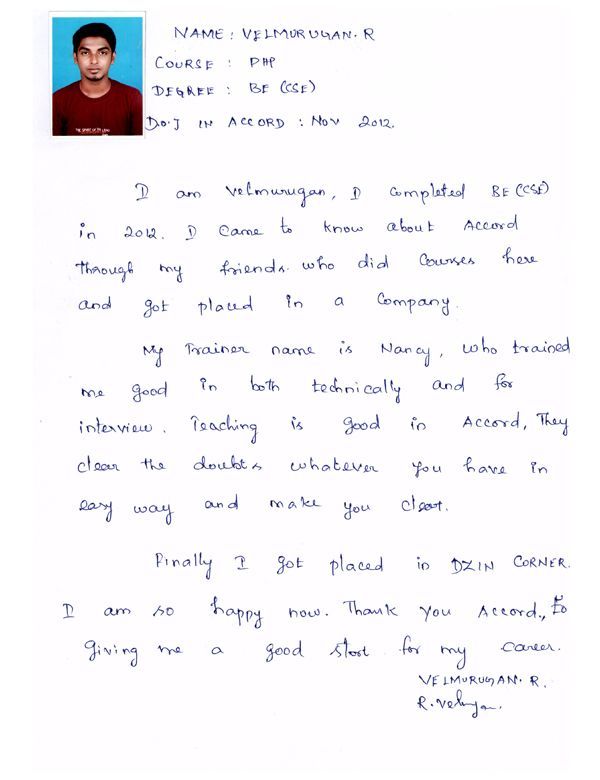 NAME : VELMURUGAN. R
COURSE : PHP
DEGREE : BE (CSE)
D.O.J IN ACCORD : NOV 2012.
I am Velmurugan, I completed BE (CSE)
in 2012. I came to know about Accord
through my friends. who did courses here
and got placed in a company.
My Trainer name is Nancy, who trained
me good in both technically and for
interview. Teaching is good in Accord, They
clear the doubts whatever you have in
easy way and make you clear.
Finally I got placed in DZIN CORNER.
I am so happy now. Thank you Accord.,
giving me a good start for my career.
VELMURUGAN. R.
R. Velu